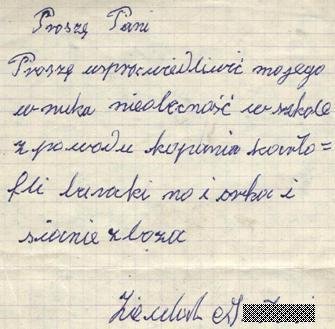 Proszę Pani
Proszę usprawiedliwić mojego
wnuka nieobecność w szkole
z powodu kopania karto=
fli buraki no i orka i
sianie zboża